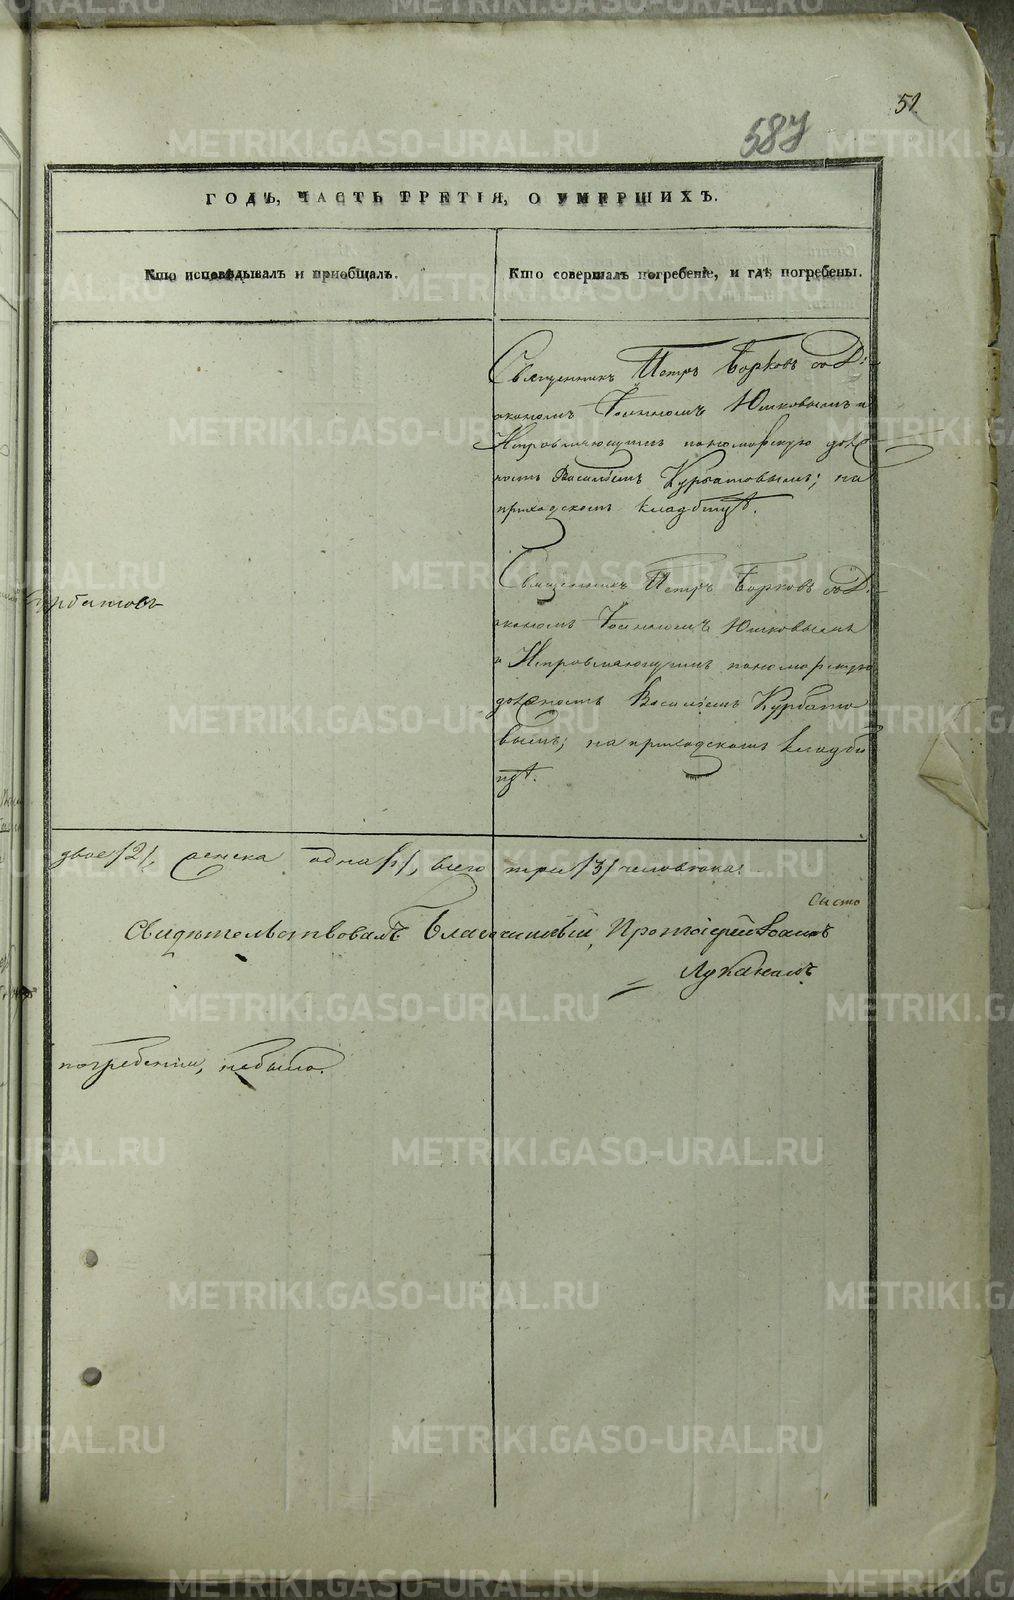 51
587
ГОДЪ, ЧАСТЬ ТРЕТІЯ, О УМЕРШИХЪ.
Кто исповѣдывалъ и приобщалъ.
Кто совершалъ погребеніе, и гдѣ погребены.
Священникъ Петръ Борковъ со Ді-
акономъ Іоанномъ Юшковымъ и
Исправляющимъ пономарскую долж-
ность Василіемъ Курбатовымъ; на
приходскомъ кладбищѣ.
Курбатовъ
Священникъ Петръ Борковъ со Ді-
акономъ Іоанномъ Юшковымъ
и Исправляющимъ пономарскую
должность Василіемъ Курбато
вымъ; на приходскомъ кладби
щѣ.
двое /2/, женска одна /1/, всего три /3/ человѣка.
Свидѣтельствовалъ Благочинный, Протоіерей Іоаннъ
Луканинъ
погребеніи, небыло.
METRIKI.GASO-URAL.RU